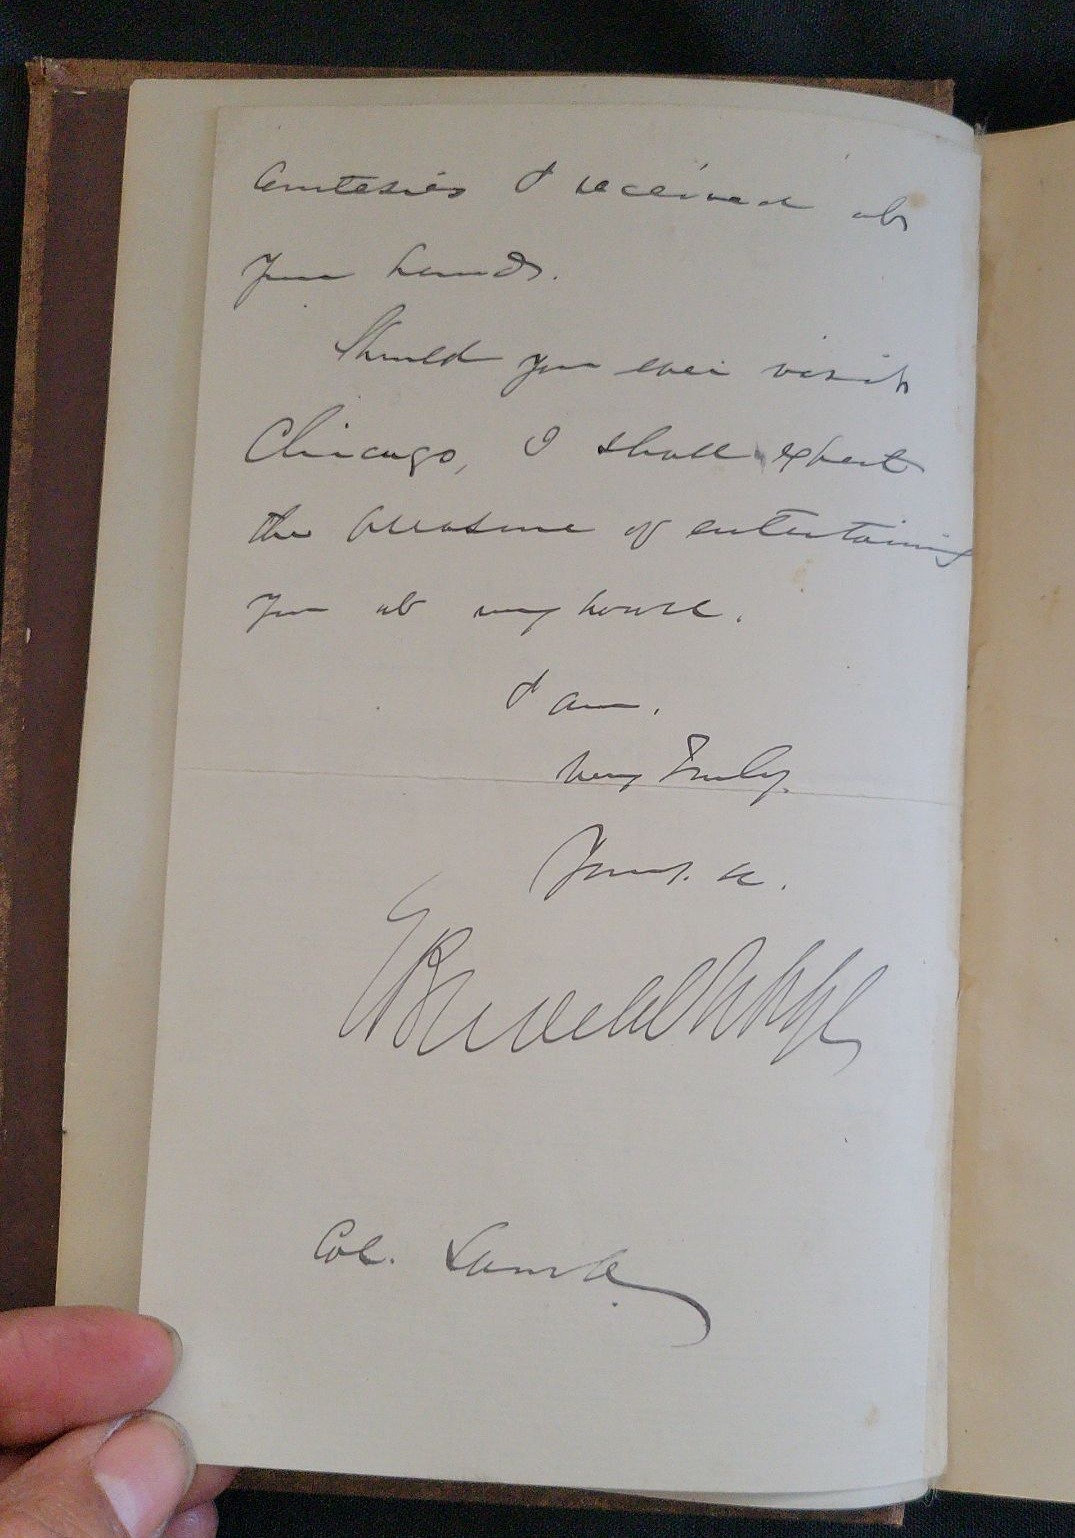 Courtesies I received at
your hands.
Should you ever visit
Chicago, I shall expect
the pleasure of entertaining
you at my house.
I am.
Very Truly.
Yours. &c.
Col. Lamb.